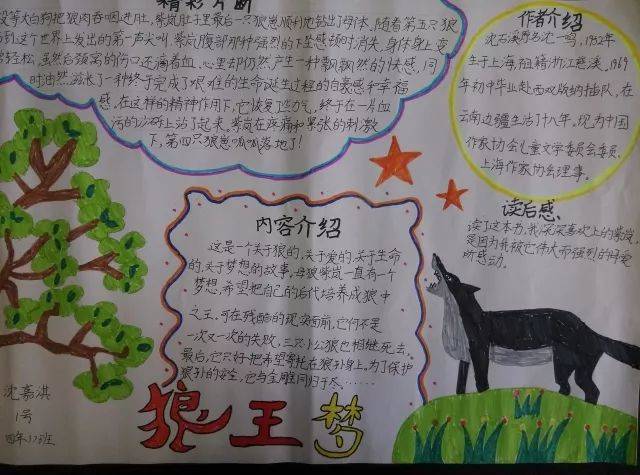 精彩片断
没等大白狗把狼肉吞咽进肚,紫岚肚子里最后一只狼崽顺利地钻出了母体。随着第五只狼
到这个世界上发出的第一声尖叫,紫岚腹部那种强烈的下坠感顿时消失,身体身上变
轻松,虽然后颈窝的伤口还滴着血,心里却仍然产生一种飘飘然的快感,同
时油然滋涨了一种终于完成了艰难的生命诞生过程的自豪感和幸福
感。在这样的精神作用下,它恢复了力气,终于在一片血
污的沙砾上站了起来。紫岚在疼痛和紧张的刺激
下,第四只狼崽呱呱落地了!
作者介绍
沈石溪原名沈一鸣,1952年
生于上海,祖籍浙江慈溪。1969
年初中毕业赴西双版纳插队,在
云南边疆生活了十八年。现为中国
作家协会儿童文学委员会委员,
上海作家协会理事。
内容介绍
这是一个关于狼的,关于爱的,关于生命
的,关于梦想的故事,母狼紫岚一直有个
梦想,希望把自己的后代培养成狼中
之王,可在残酷的现实面前,它们不是
一次又一次的失败,三只小公狼也相继死去。
最后,它只好把希望寄托在狼孙身上,为了保护
狼孙的安全,它与金雕同归于尽、……
读后感
读了这本书,我深深喜欢上的紫岚
是因为我被它伟大而强烈的母爱
所感动。
狼王梦
沈嘉淇
1号
四年
班